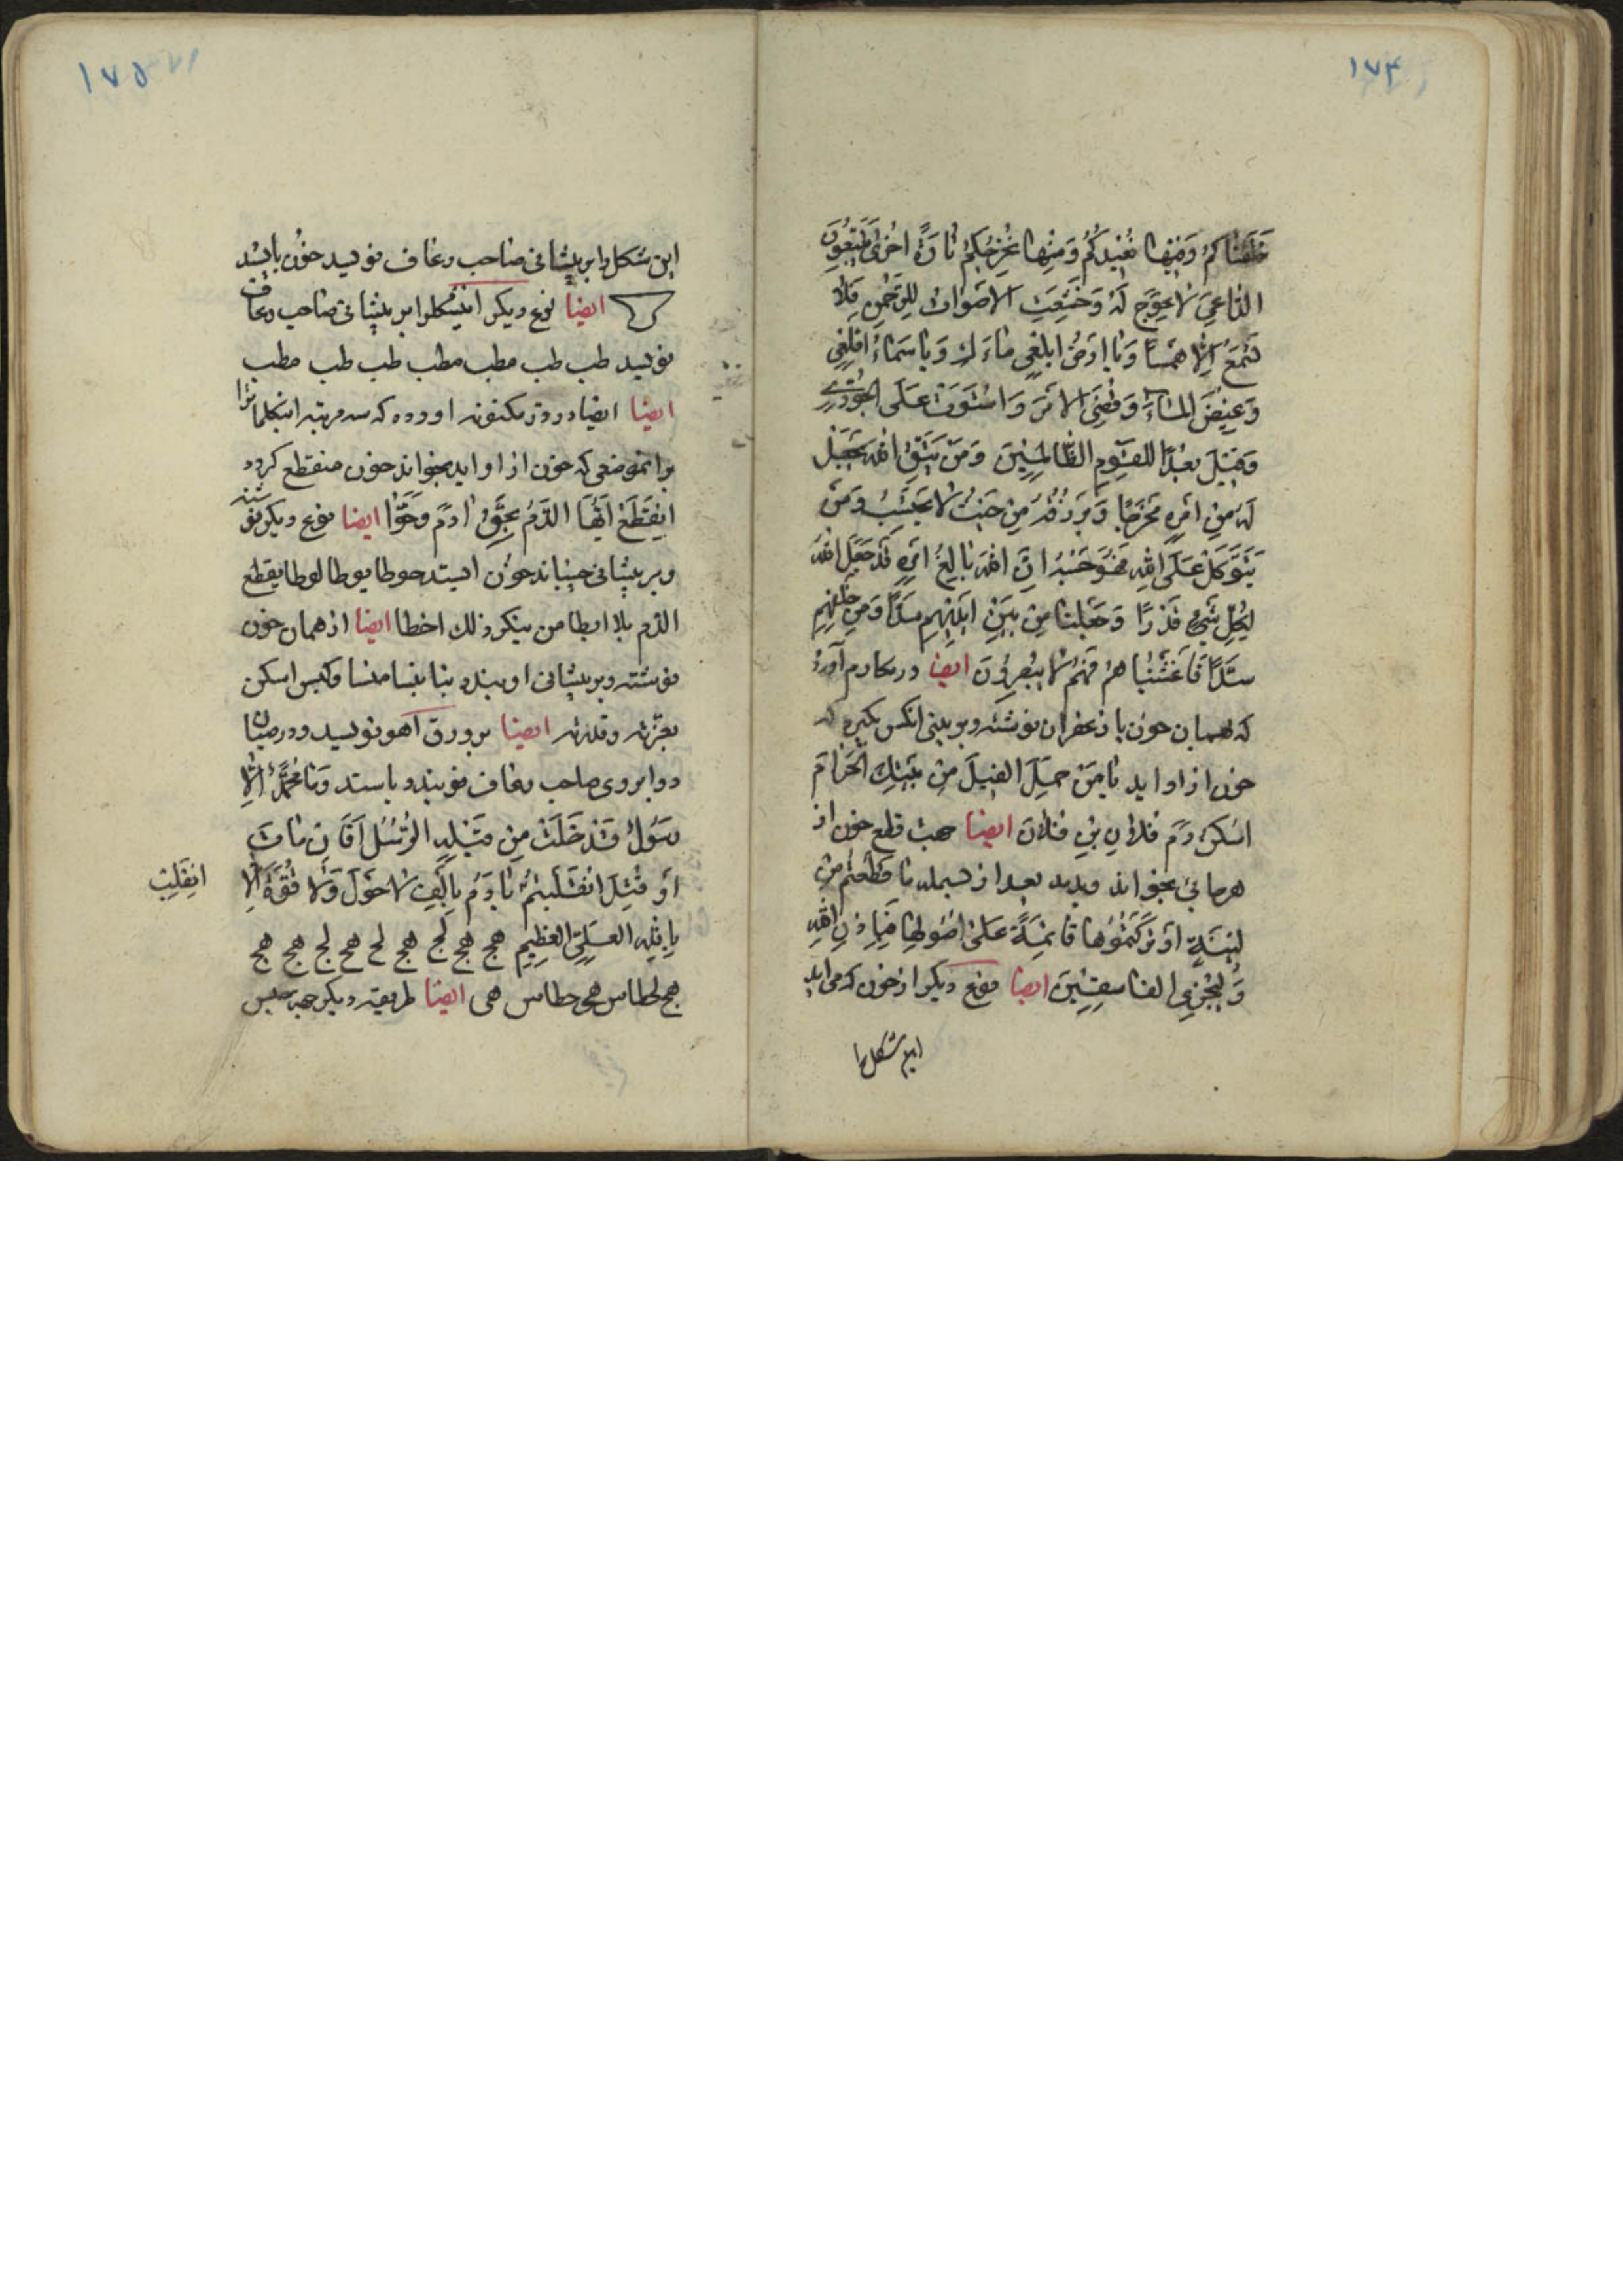 ۱۷۴
خَلَقْناكُمْ وَفيها نُعيدُكُمْ وَمِنْها نُخْرِجُكُمْ تارَةً اُخْرىٰ يَتَّبِعُونَ
الدّاعِىَ لا عِوَجَ لَهُ وَخَشَعَتِ الاَصْواتُ لِلرَّحْمٰنِ فَلا
تَسْمَعُ اِلّا هَمْسًا وَيا اَرْضُ ابْلَعِى ماءَكِ وَيا سَماءُ اقْلِعِى
وَغيضَ الْماءُ وَقُضِىَ الاَمْرُ وَاسْتَوَتْ عَلَى الْجُودِىِّ
وَقيلَ بُعْدًا لِلْقَوْمِ الظّالِمينَ وَمَنْ يَتَّقِ اللهَ يَجْعَلْ
لَهُ مِنْ اَمْرِهِ مَخْرَجًا وَيَرْزُقْهُ مِنْ حَيْثُ لا يَحْتَسِبُ وَمَنْ
يَتَوَكَّلْ عَلَى اللهِ فَهُوَ حَسْبُهُ اِنَّ اللهَ بالِغُ اَمْرِهِ قَدْ جَعَلَ اللهُ
لِكُلِّ شَىْءٍ قَدْرًا وَجَعَلْنا مِنْ بَيْنِ اَيْديهِمْ سَدًّا وَمِنْ خَلْفِهِمْ
سَدًّا فَاَغْشَيْناهُمْ فَهُمْ لا يُبْصِرُونَ ايضا در مكارم آورده
كه بهمان خون يا زعفران نوشته و بر بينى انكس بكيرد كه
خون از او ايد يا مَنْ حَمَلَ الفيلَ مِنْ بَيْتِكَ الْحَرامَ
اسْكُنْ دَمَ فُلانِ بْنِ فُلانَ ايضا جهت قطع خون از
هر جائى بخواند و بدمد بعد از بسمله ما قَطَعْتُمْ مِنْ
لينَةٍ اَوْ تَرَكْتُمُوها قائِمَةً عَلىٰ اُصُولِها فَبِاِذْنِ اللهِ
وَلِيُخْزِىَ الفاسِقينَ ايضا نوع ديكر از خون كه مى ايد
اين شكل را
۱۷۵
اين شكل را بر پيشانى صاحب رعاف نويسد خون بايستد
ايضا نوع ديكر اينشكلرا بر پيشانى صاحب رعاف
نويسد طب طب مطب مطب طب طب مطب
ايضا ايضا در در مكنونه اورده كه سه مرتبه اينكلماترا
بر انموضعى كه خون از او ايد بخواند خون منقطع كردد
اِنْقَطِعْ اَيُّهَا الدَّمُ بِحَقِّ ادَمَ وَحَوّا ايضا نوع ديكر نوشته
و بر پيشانى چسباند خون ايستد حوطا يوطا لوطا يقطع
الدم بلا ابطا من ينكر ذلك اخطا ايضا از همان خون
نوشته و بر پيشانى او بندد
بعزته وقدرته ايضا بر ورق اهو نويسد و در ميان
دو ابروى صاحب رعاف بندد بايستد وَما مُحَمَّدٌ اِلّا
رَسُولٌ قَدْ خَلَتْ مِنْ قَبْلِهِ الرُّسُلُ اَفَاِنْ ماتَ
اَوْ قُتِلَ انْقَلَبْتُمْ يا دَمُ لا حَوْلَ وَلا قُوَّةَ اِلّا
انقلبت
بِاللهِ العَلِىِّ العَظيمِ هج هج هج لج هج لج هج لج هج هج
هج لحطاس هج حطاس هى ايضا طريقه ديكر جهت حبس